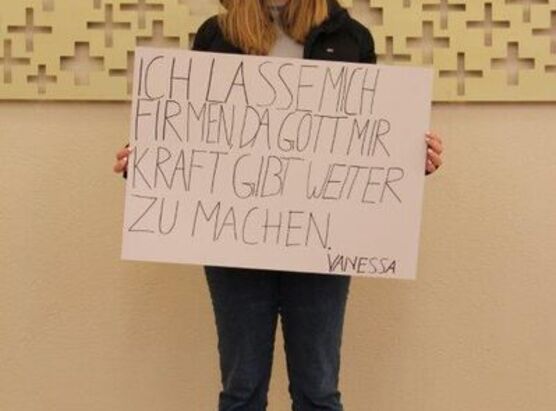 ICH LASSE MICH
FIRMEN, DA GOTT MIR
KRAFT GIBT WEITER
ZU MACHEN.
VANESSA